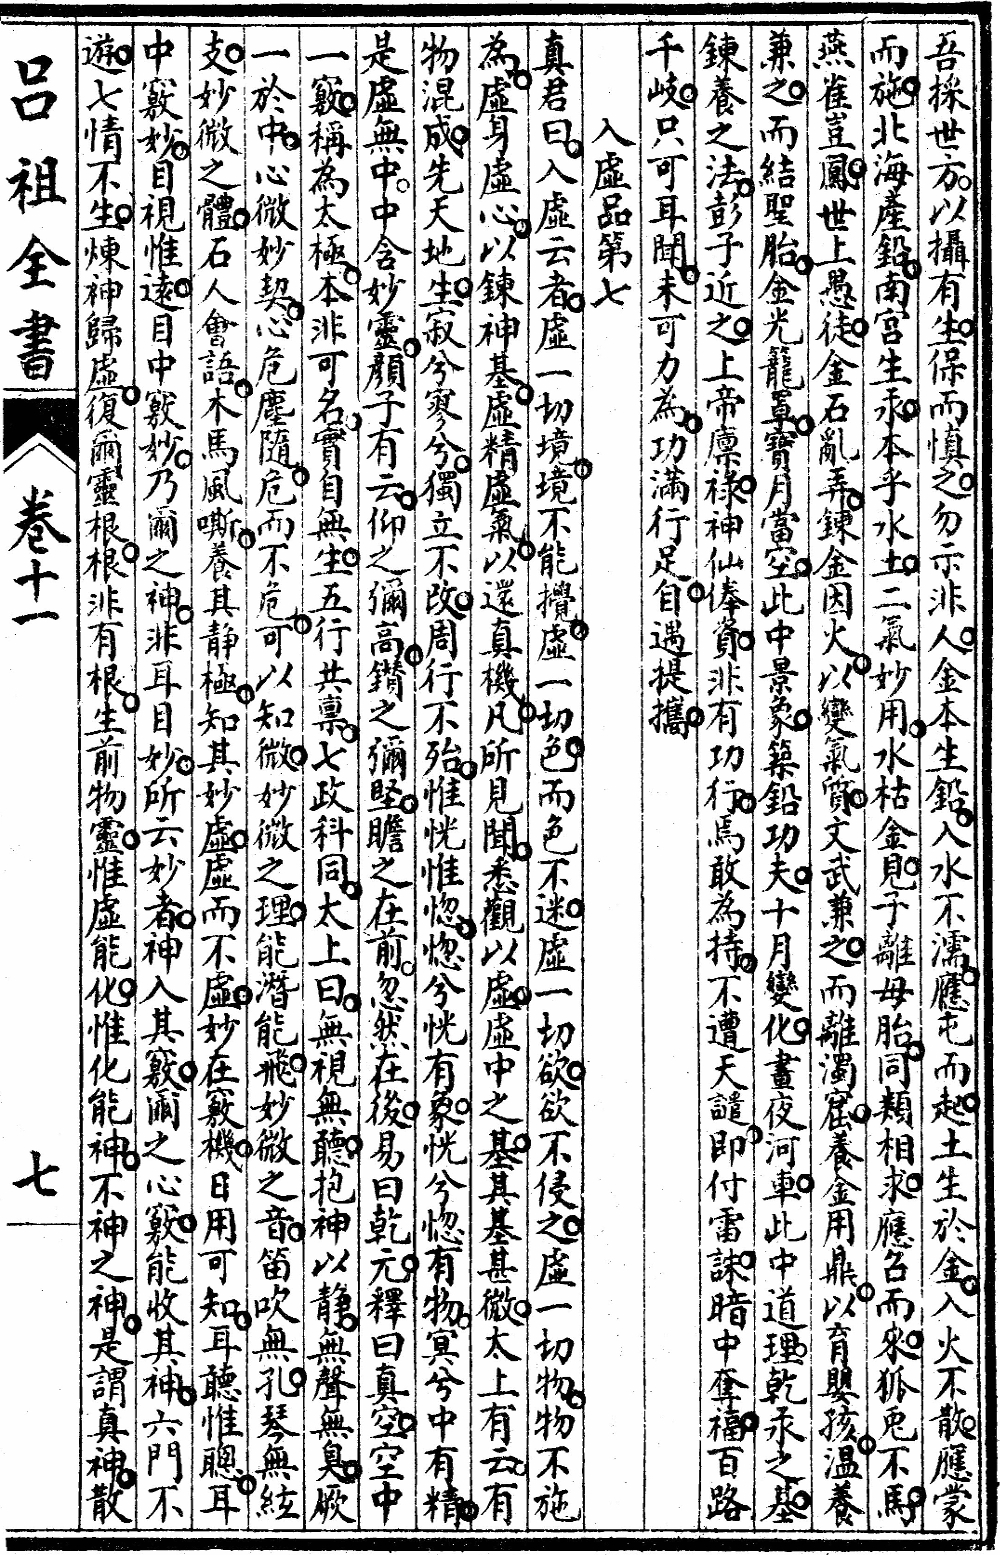 吾採世方以攝有生保而慎之勿示非人金本生鉛入水不濡應屯而起土生於金入火不散應蒙
而施北海產鉛南宮生汞本乎水土二氣妙用水枯金見子離母胎同類相求應召而來狐兎不馬
燕雀豈鳳世上愚徒金石亂弄鍊金因火以變氣質文武兼之而離濁窟養金用鼎以育嬰孩溫養
兼之而結聖胎金光籠罩寶月當空此中景象築鉛功夫十月變化晝夜河車此中道理乾汞之基
鍊養之法彭子近之上帝廪祿神仙俸資非有功行焉敢為持不遭天譴即付雷誅暗中奪福百路
千岐只可耳聞未可力為功滿行足自遇提攜
入虛品第七
真君曰入虛云者虛一切境境不能攪虛一切色而色不迷虛一切欲欲不侵之虛一切物物不施
為虛身虛心以鍊神基虛精虛氣以還真機凡所見聞悉觀以虛虛中之基其基甚微太上有云有
物混成先天地生寂兮寥兮獨立不改周行不殆惟恍惟惚惚兮恍有象恍兮惚有物冥兮中有精
是虛無中中含妙靈顏子有云仰之彌高鑽之彌堅瞻之在前忽然在後易曰乾元釋曰真空空中
一竅稱為太極本非可名實自無生五行共禀七政科同太上曰無視無聽抱神以静無聲無臭厥
一於中心微妙契心危塵隨危而不危可以知微妙微之理能潛能飛妙微之音笛吹無孔琴無絃
支妙微之體石人會語木馬風嘶養其静極知其妙虛虛而不虛妙在竅機日用可知耳聽惟聰耳
中竅妙目視惟遠目中竅妙乃爾之神非耳目妙所云妙者神入其竅爾之心竅能收其神六門不
遊七情不生煉神歸虛復爾靈根根非有根生前物靈惟虛能化惟化能神不神之神是謂真神散
呂祖全書
卷十一
七